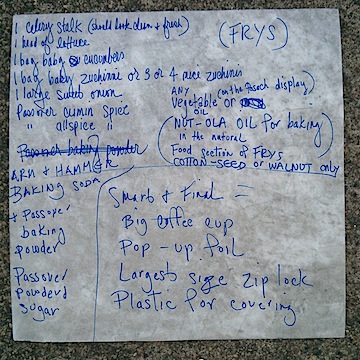 1 Celery stalk (should look clean + fresh)
1 head of lettuce
1 bag baby cucumbers
1 bag baby zucchini or 3 or 4 nice zuchinis
1 large sweet onion
Passover cumin spice
" allspice "
Passover baking powder
ARM & HAMMER
BAKING SODA
+ Passover
baking
powder
Passover
powderd
sugar
(FRYS)
ANY (on the Pesach display)
Vegetable or
OIL
NUT-OLA OIL for baking
in the natural
Food section of FRYS
COTTON-SEED or WALNUT only
Smart & Final =
Big coffee cup
Pop-up foil
Largest size zip lock
Plastic for covering